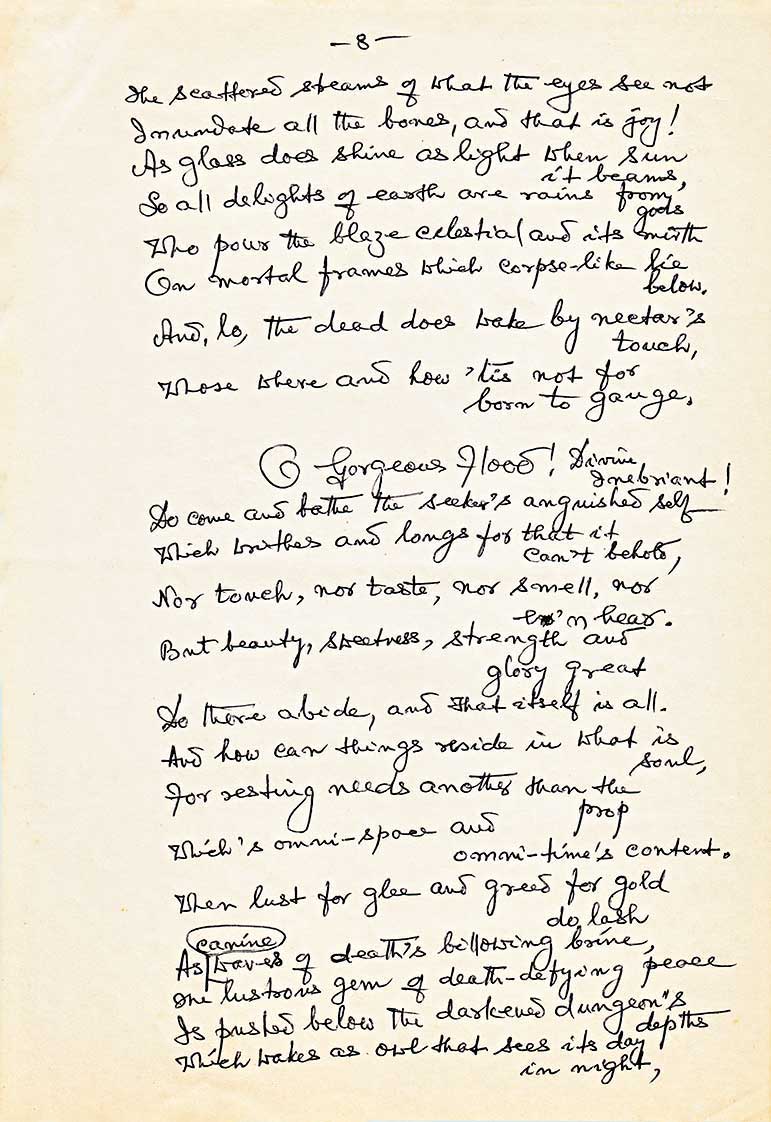 — 8 —
The scattered streams of what the eyes see not
Inundate all the bones, and that is joy!
As glass does shine as light when sun
it beams,
So all delights of earth are rains from
gods
Who pour the blaze celestial and its mirth
On mortal frames which corpse-like lie
below.
And, lo, the dead does wake by nectar's
touch,
Whose where and how 'tis not for
born to gauge.
O Gorgeous Flood! Divine
Inebriant!
Do come and bathe the seeker's anguished self
Which writhes and longs for that it
can't behold,
Nor touch, nor taste, nor smell, nor
e'n hear.
But beauty, sweetness, strength and
glory great
Do there abide, and that itself is all.
And how can things reside in what is
soul,
For resting needs another than the
prop
Which's omni-space and
omni-time's content.
When lust for glee and greed for gold
do lash
canine
As waves of death's billowing brine,
The lustrous gem of death-defying peace
Is pushed below the darkened dungeon's
depths
Which wakes as owl that sees its day
in night,